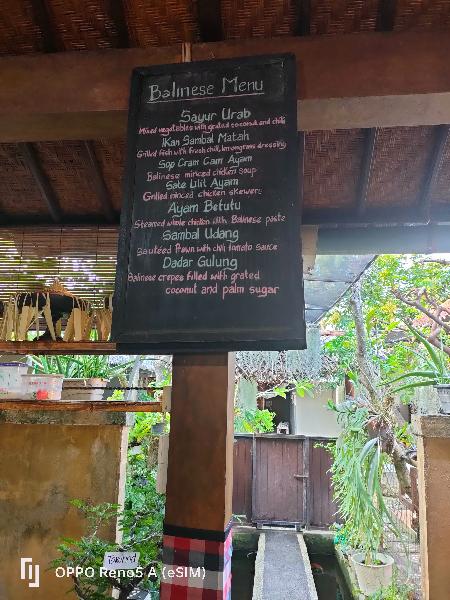 Balinese Menu
Sayur Urab
Mixed vegetables with grated coconut and chili
Ikan Sambal Matah
Grilled fish with fresh chili, lemongrass dressing
Sop Cram Cam Ayam
Balinese minced chicken soup
Sate Lilit Ayam
Grilled minced chicken skewers
Ayam Betutu
Steamed whole chicken with Balinese paste
Sambal Udang
Sauteed Prawn with chili tomato sauce
Dadar Gulung
Balinese crepes filled with grated
coconut and palm sugar
OPPO Reno5 A (eSIM)